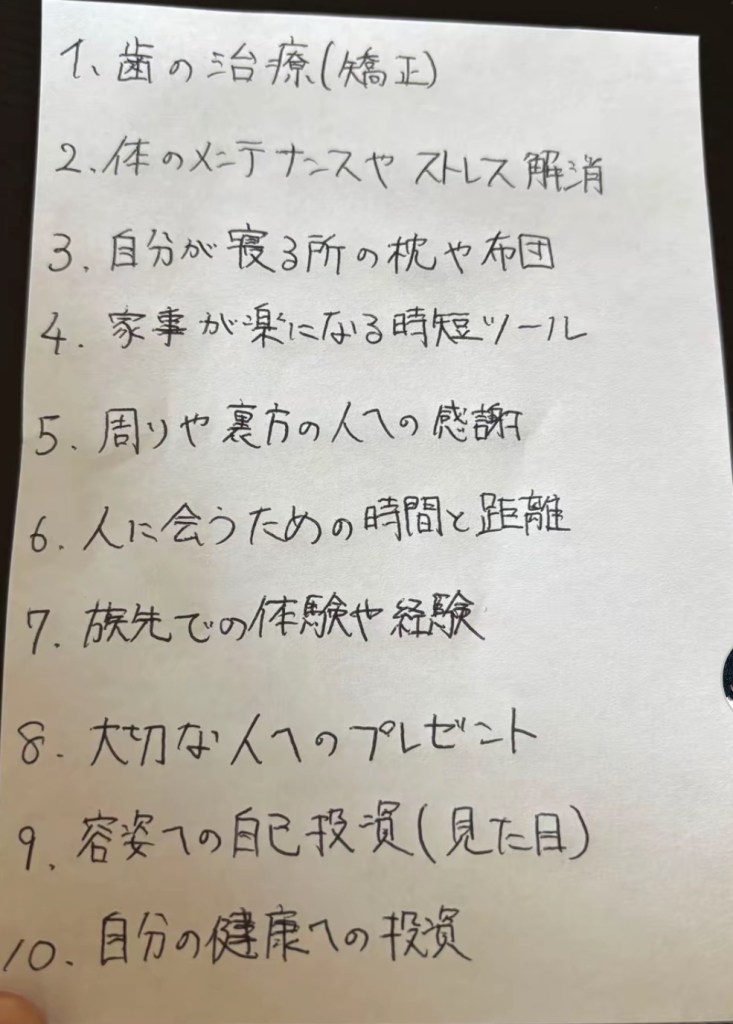 1、歯の治療(矯正)
2、体のメンテナンスや ストレス解消
3、自分が寝る所の枕や布団
4、家事が楽になる時短ツール
5、周りや裏方の人への感謝
6、人に会うための時間と距離
7、旅先での体験や経験
8、大切な人へのプレゼント
9、容姿への自己投資(見た目)
10、自分の健康への投資